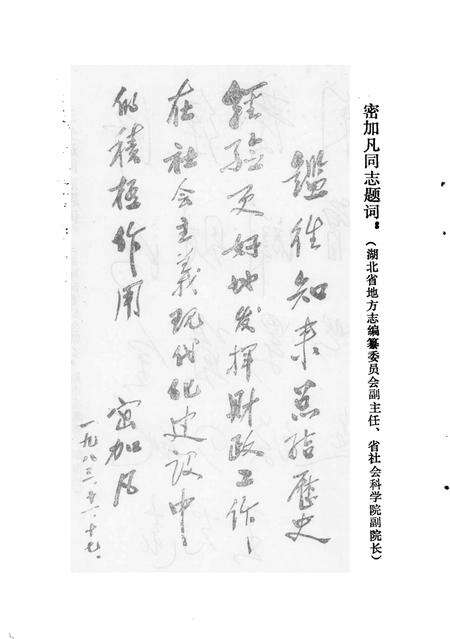 密加凡同志题词：
（湖北省地方志编纂委员会副主任、省社会科学院副院长）
鑑往知来总结历史
经验更好地发挥财政工作
在社会主义现代化建设中
的积极作用
密加凡
一九八三、十一、十七、